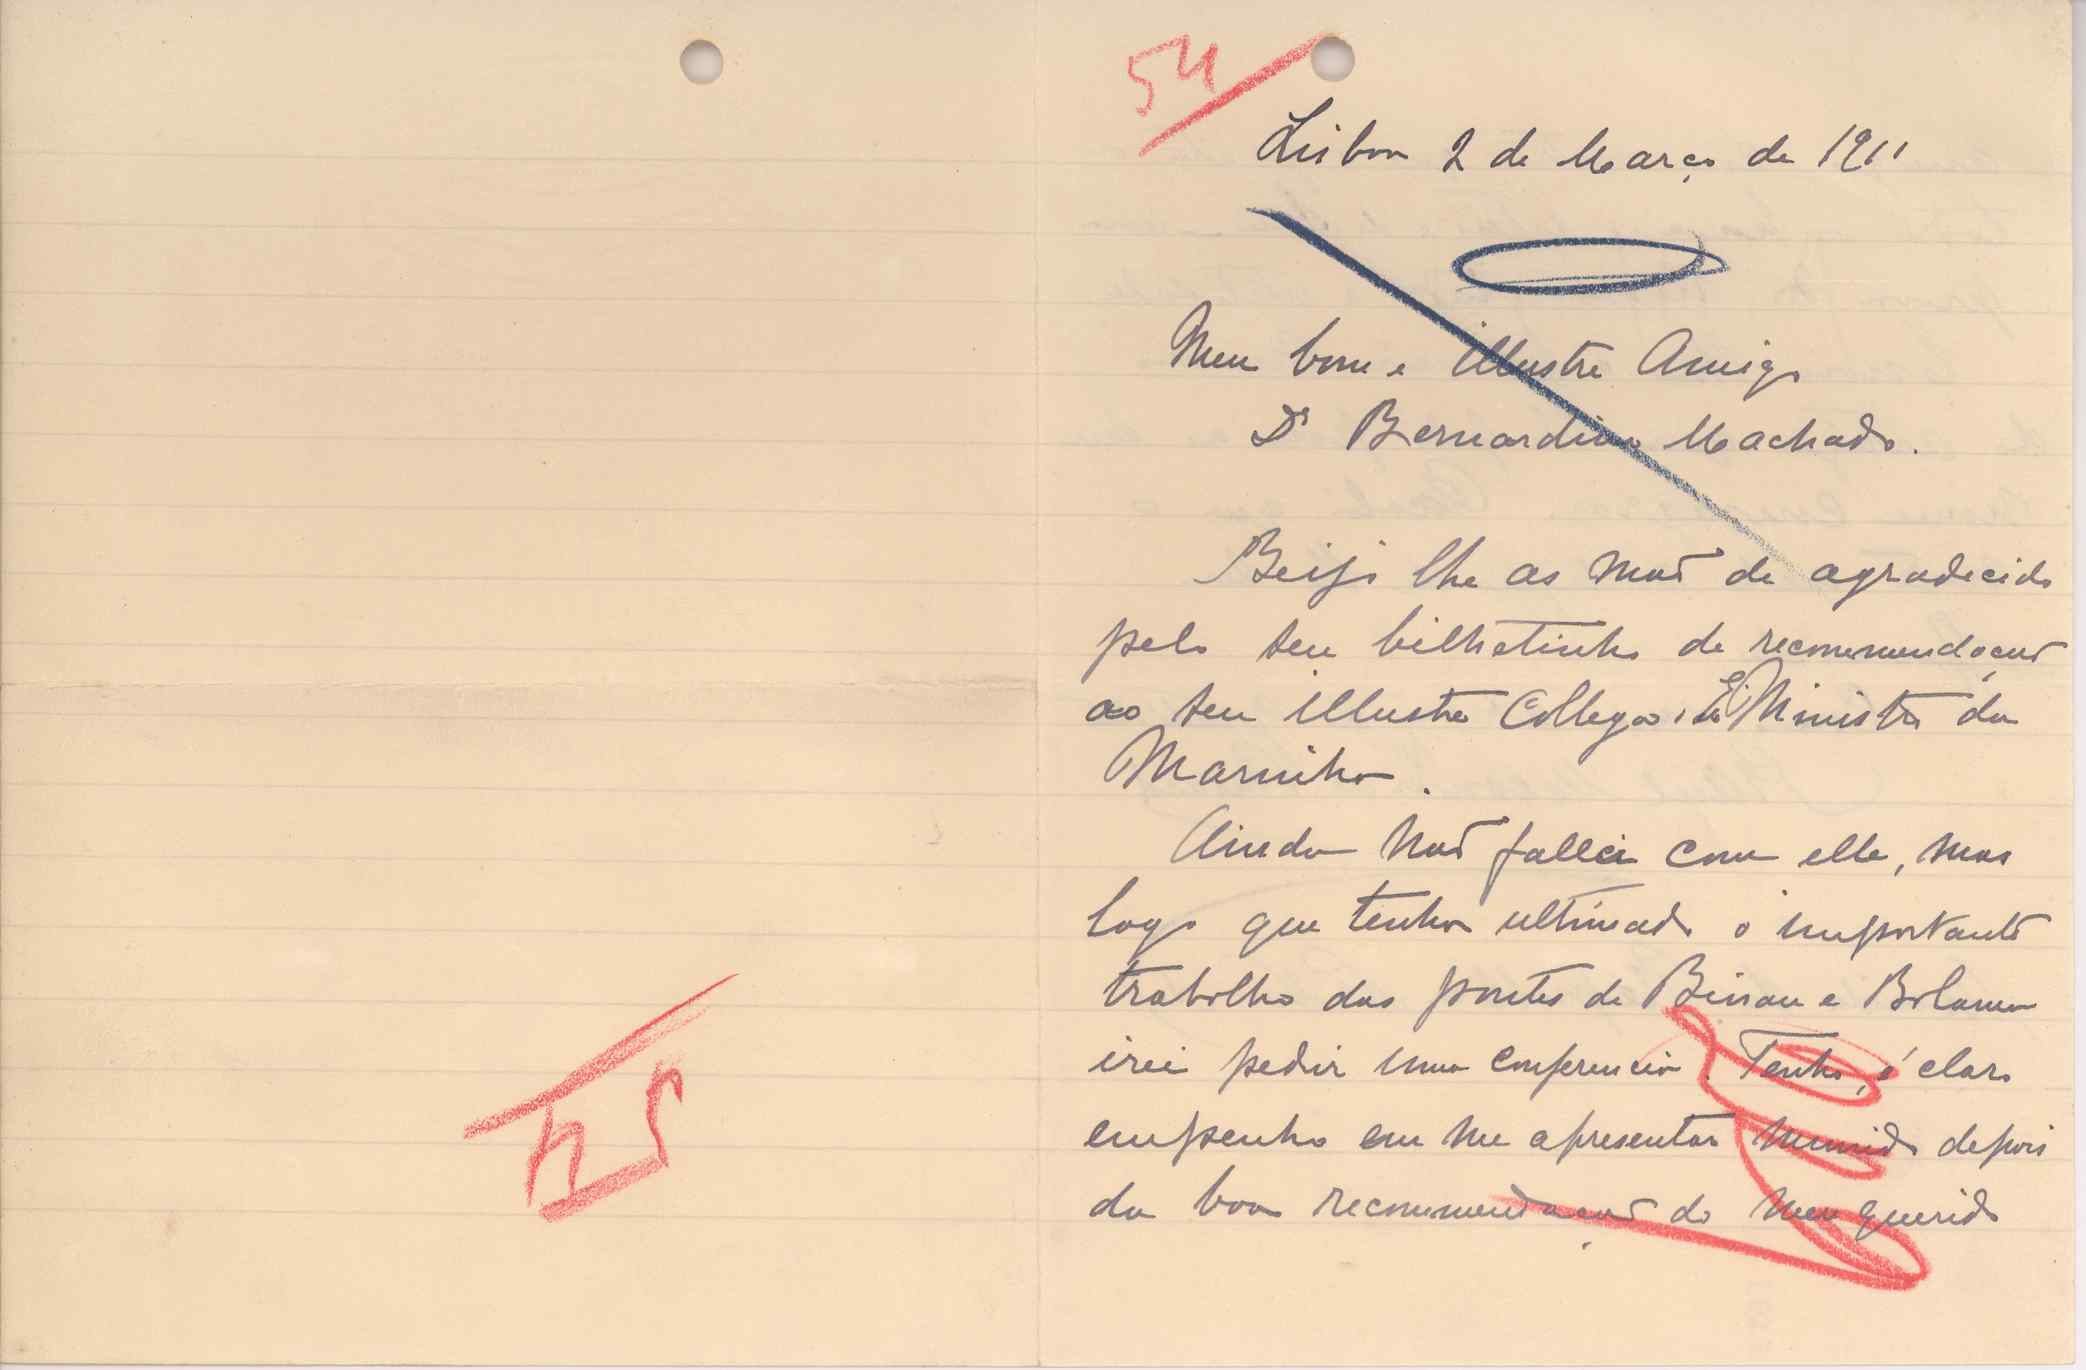 54
Lisboa 2 de Março de 1911
Meu bom e illustre Amigo
Dr Bernardino Machado.
Beijo lhe as mãos de agradecido
pelo seu bilhetinho de recommendação
ao seu illustre Collega, Ministro da
Marinha.
Ainda não fallei com elle, mas
logo que tenha ultimado o importante
trabalho das pontes de Bissau e Bolama
irei pedir uma conferencia. Tenho, é claro
empenho em me apresentar munido depois
da boa recommendação do meu querido